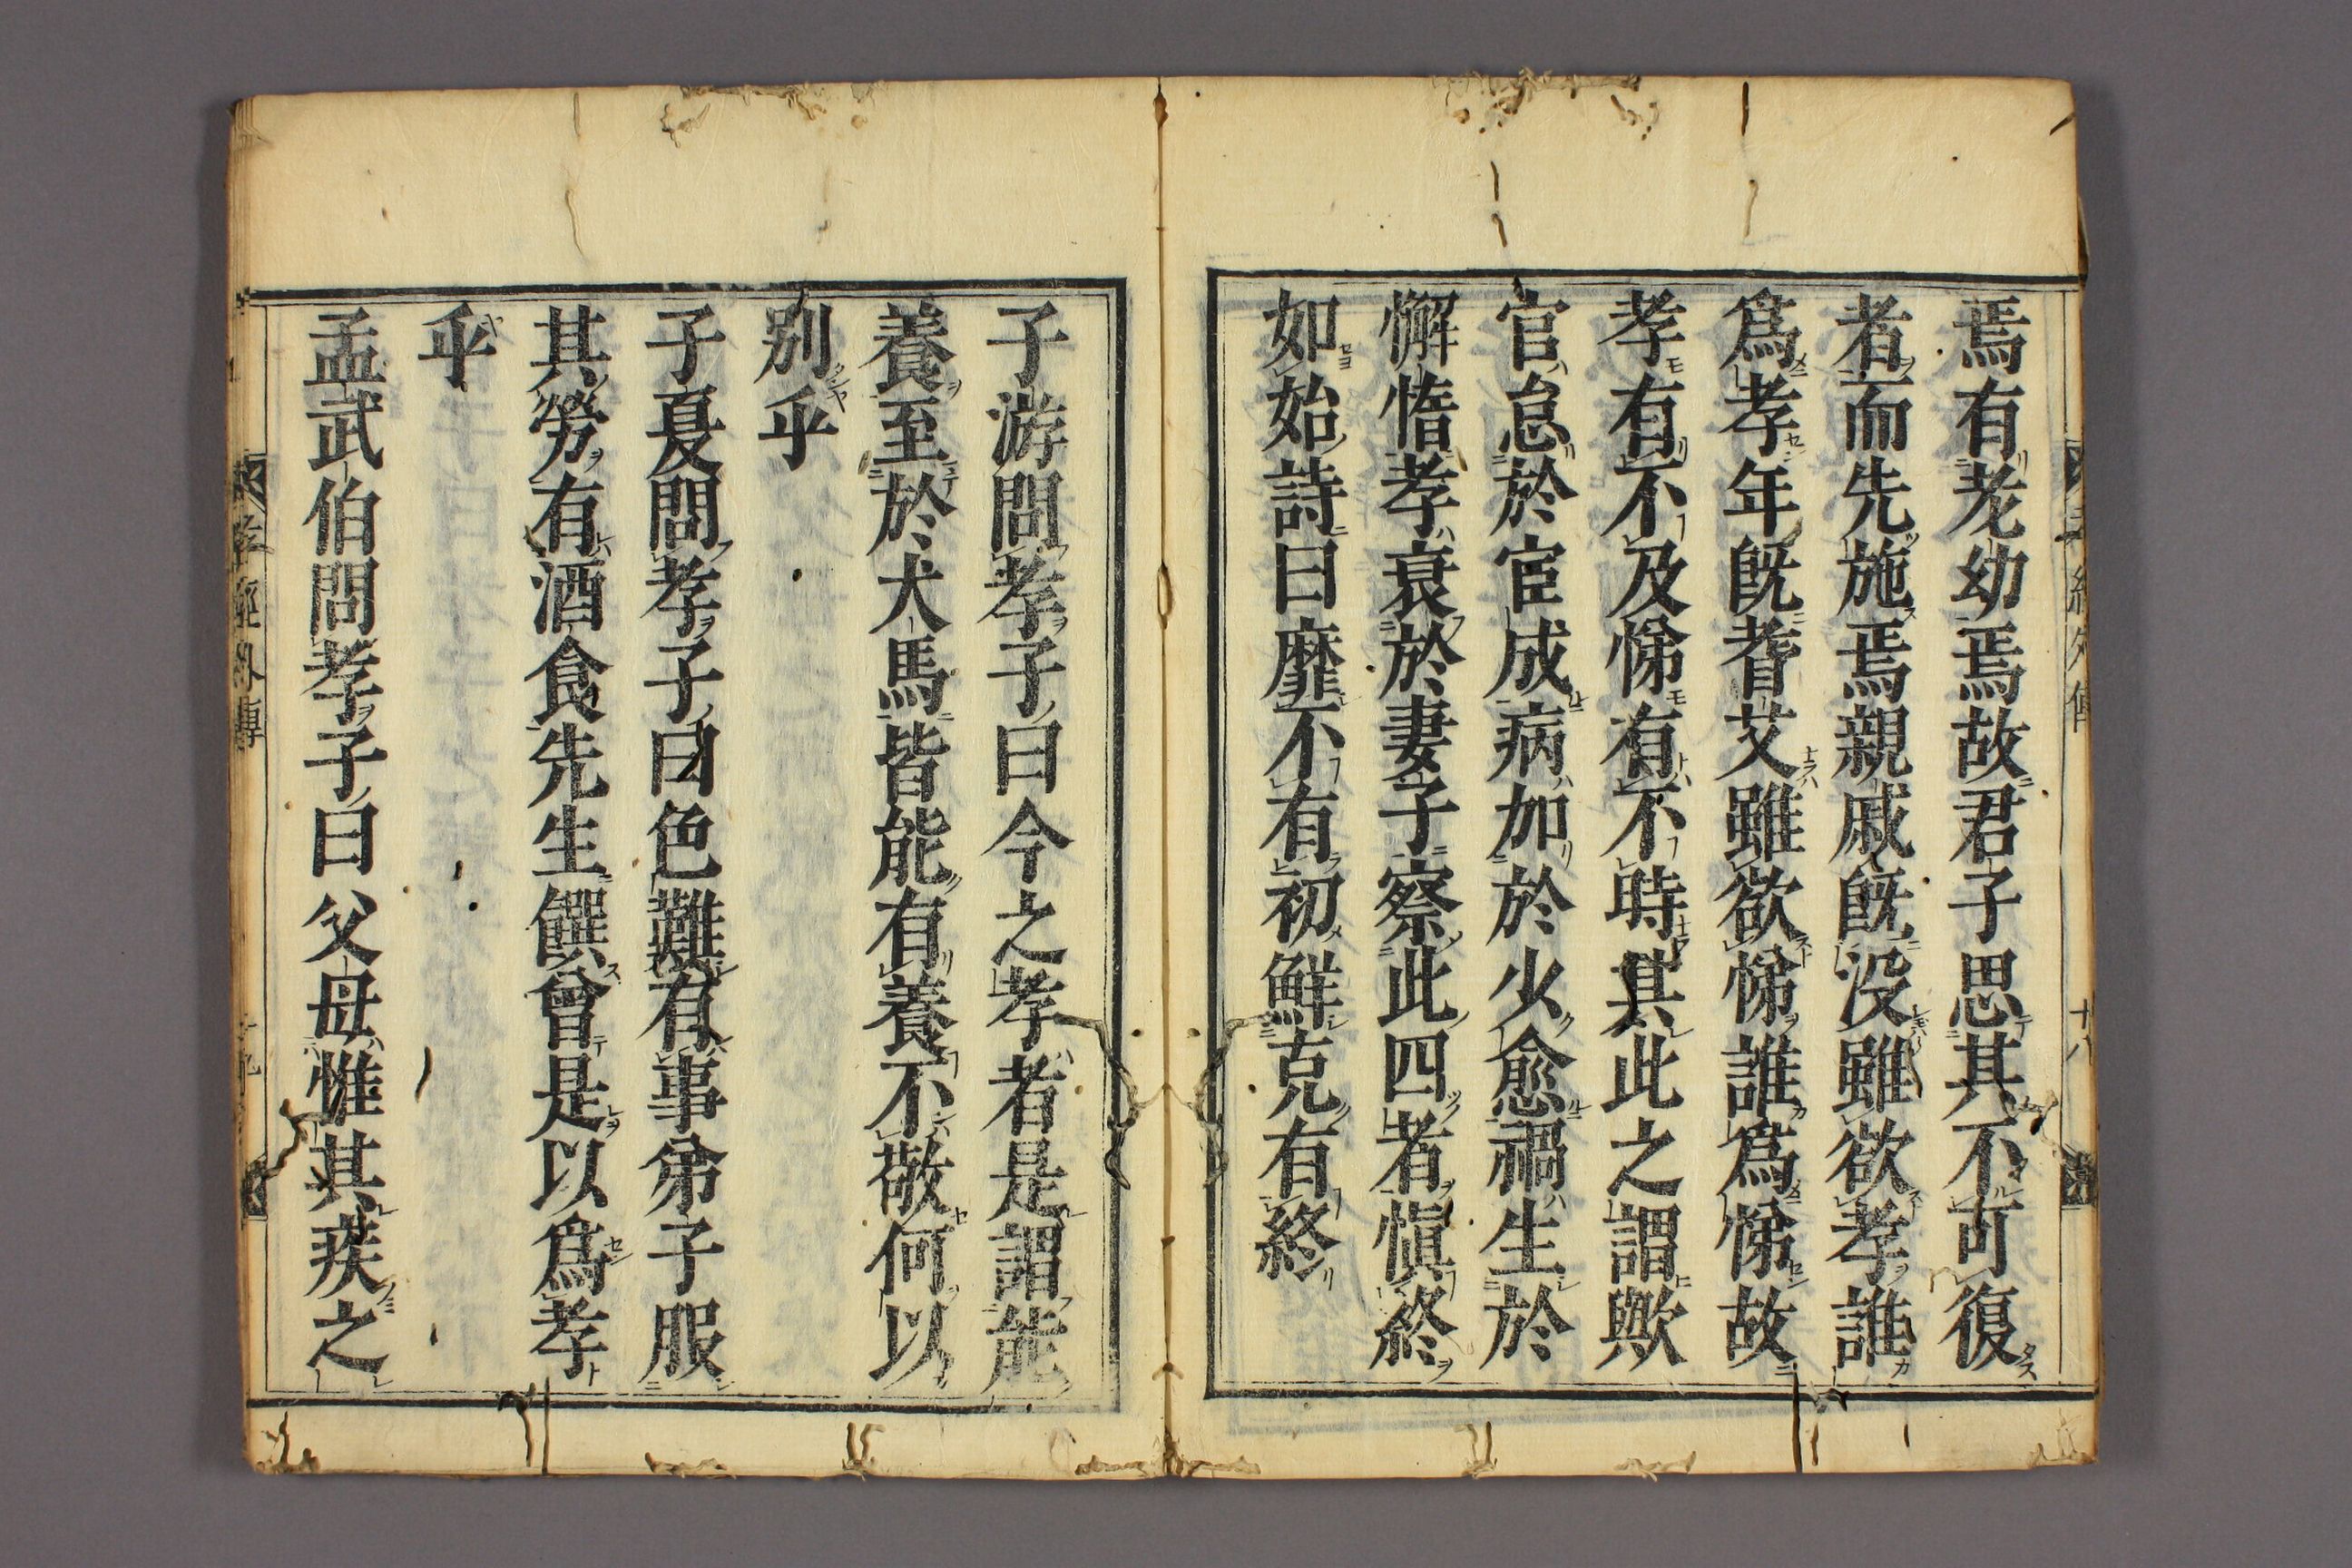 焉有老幼焉故君子思其不可復
者而先施焉親戚既没雖欲孝誰
爲孝年既耆艾雖欲悌誰爲悌故
孝有不及悌有不時其此之謂歟
官怠於宦成病加於少愈禍生於
懈惰孝衰於妻子察此四者愼終
如始詩曰靡不有初鮮克有終
子游問孝子曰今之孝者是謂能
養至於犬馬皆能有養不敬何以
别乎
子夏問孝子曰色難有事弟子服
其勞有酒食先生饌曾是以爲孝
乎
孟武伯問孝子曰父母惟其疾之
孝經外傳